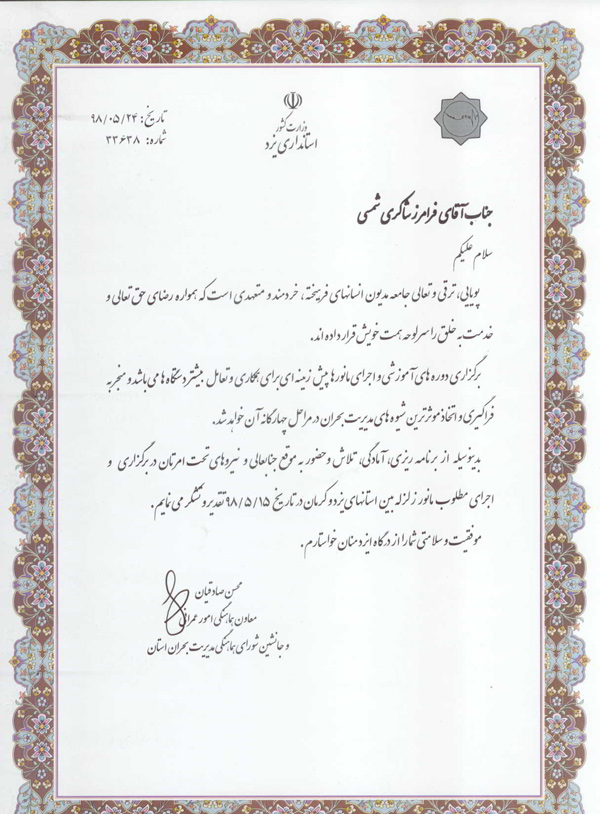 وزارت کشور
استانداری یزد
تاریخ: ۹۸/۰۵/۲۴
شماره: ۳۳۶۳۸
جناب آقای فرامرز شاکری شمسی
سلام علیکم
پویایی، ترقی و تعالی جامعه مدیون انسانهای فرهیخته، خردمند و متعهدی است که همواره رضای حق تعالی و
خدمت به خلق را سرلوحه همت خویش قرار داده اند.
برگزاری دوره های آموزشی و اجرای مانورها پیش زمینه ای برای همکاری و تعامل بیشتر دستگاه ها می باشد و منجر به
فراگیری و اتخاذ موثرترین شیوه های مدیریت بحران در مراحل چهارگانه آن خواهد شد.
بدینوسیله از برنامه ریزی، آمادگی، تلاش و حضور به موقع جنابعالی و نیروهای تحت امرتان در برگزاری و
اجرای مطلوب مانور زلزله بین استانهای یزد و کرمان در تاریخ ۹۸/۵/۱۵ تقدیر و تشکر می نمایم.
موفقیت و سلامتی شما را از درگاه ایزد منان خواستارم.
محسن صادقیان
معاون هماهنگی امور عمرانی
و جانشین شورای هماهنگی مدیریت بحران استان